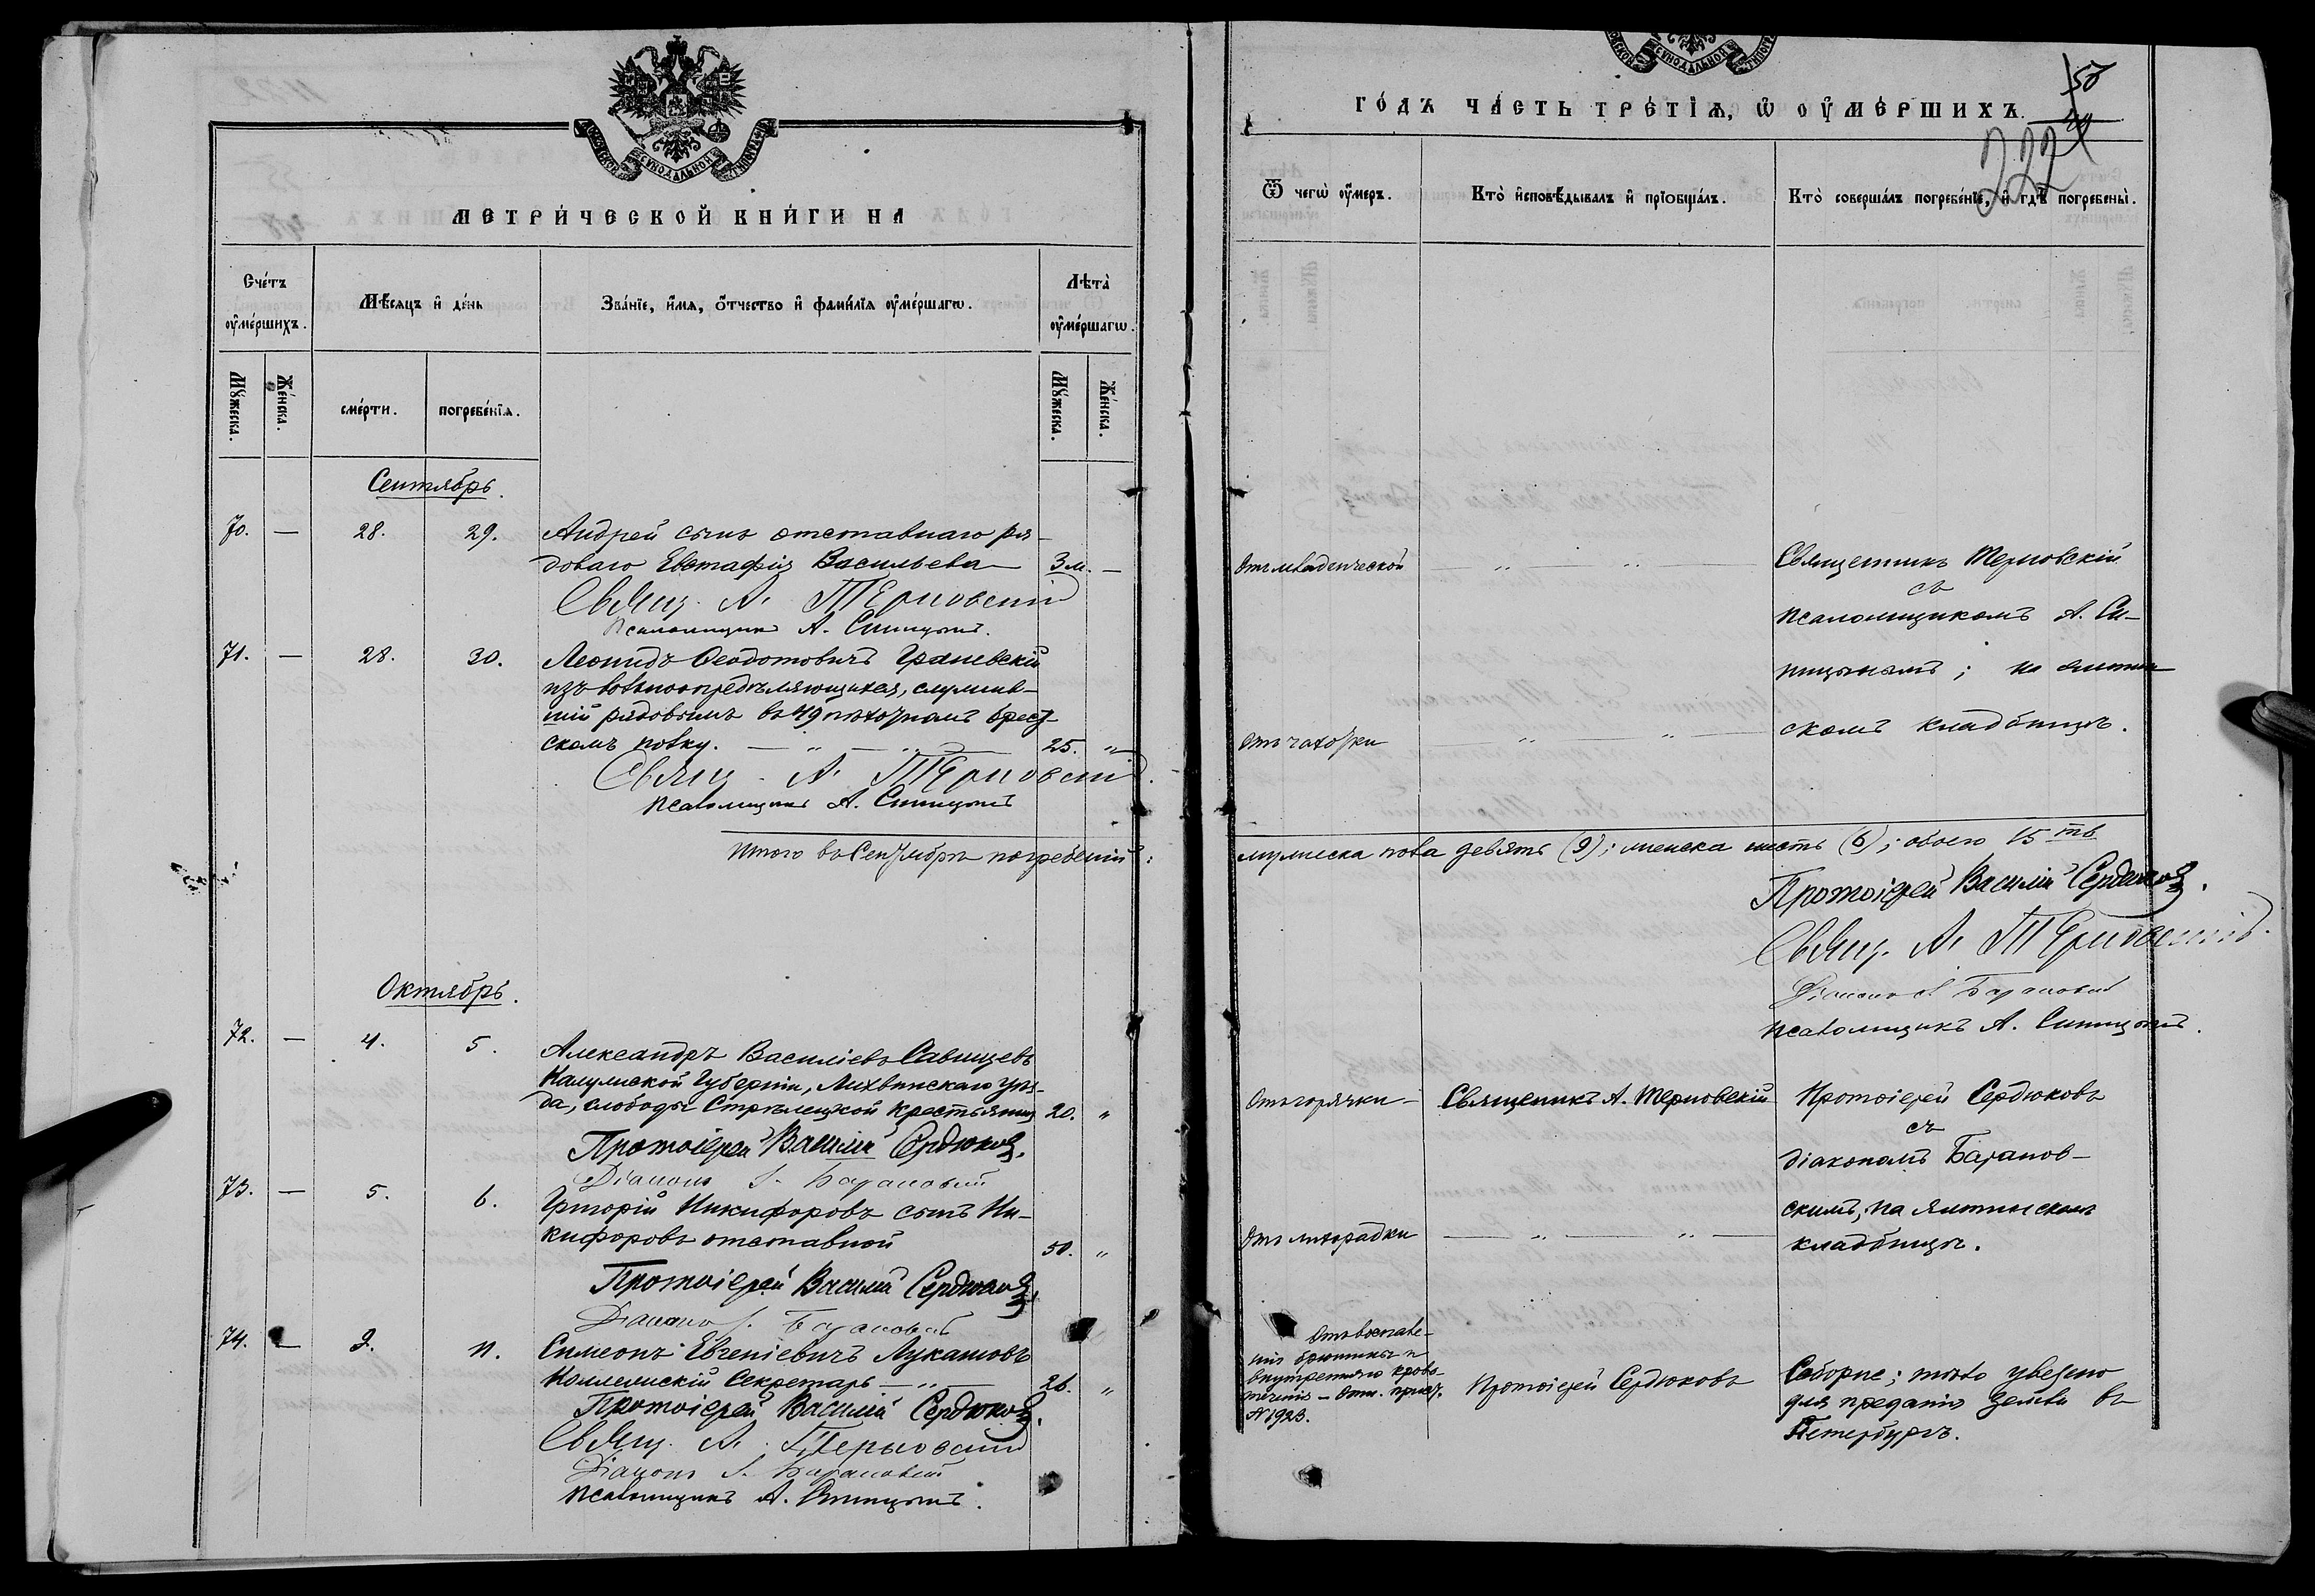 МЕТРИ́ЧЕСКОЙ КНИ́ГИ НА
Сче́тъ ᲂу҆ме́ршихъ.
Мѣ́сяцъ и҆ де́нь
Зва́нїе, и҆́мя, ѻ҆́тчество и҆ фами́лїя ᲂу҆ме́ршагѡ.
Лѣта̀ ᲂу҆ме́ршагѡ.
Мꙋ́жеска.
Же́нска.
сме́рти.
погребе́нїѧ.
Мꙋ́жеска.
Же́нска.
Сентябрь.
70. — 28. 29. Андрей сынъ отставнаго ря-
доваго Евстафія Васильева — 3 м. —
Свящ. А. Терновскій
Псаломщикъ А. Синицынъ.
71. — 28. 30. Леонидъ Ѳеодотовичъ Граневскій
изъ вольноопредѣляющихся, служив-
шій рядовымъ въ 49 пѣхотномъ Брест-
скомъ полку. — „ — „ — 25. „
Свящ. А. Терновскій.
Псаломщикъ А. Синицынъ
Итого въ Сентябрѣ погребеній:
Октябрь.
72. — 4. 5. Александръ Василіевъ Савищевъ
Калужской Губерніи, Лихвинскаго уѣз-
да, слободы Стрѣлецкой крестьянинъ 20. „
Протоіерей Василій Сердюковъ.
Діаконъ Барановскій
73. — 5. 6. Григорій Никифоровъ сынъ Ни-
кифоровъ отставной 50. „
Протоіерей Василій Сердюковъ.
Діаконъ Барановскій
74. — 9. 11. Симеонъ Евгеніевичъ Лукашовъ
Коллежскій Секретарь — „ — 26. „
Протоіерей Василій Сердюковъ.
Свящ. А. Терновскій
Діаконъ Барановскій
Псаломщикъ А. Синицынъ.
ГО́ДЪ ЧА́СТЬ ТРЕ́ТЇѦ, Ѡ҆ ᲂУ҆МЕ́РШИХЪ.
50
227
Ѿ чегѡ̀ ᲂу҆́меръ.
Кто̀ и҆сповѣ́дывалъ и҆ прїѡбща́лъ.
Кто̀ соверша́лъ погребе́нїе, и҆ гдѣ̀ погребены̀.
Отъ младенческой — „ — „
Священникъ Терновскій
съ
псаломщикомъ А. Си-
ницынымъ; на ялтин-
скомъ кладбищѣ.
Отъ чахотки — „ — „ —
мужеска пола девять (9); женска шесть (6); обоего 15 ть
Протоіерей Василій Сердюковъ.
Свящ. А. Терновскій.
Діаконъ Барановскій
Псаломщикъ А. Синицынъ.
Отъ горячки — Священникъ А. Терновскій
Протоіерей Сердюковъ
съ
діакономъ Баранов-
скимъ, на ялтинскомъ
кладбищѣ.
Отъ лихорадки — „ — „ —
Отъ воспале-
нія брюшины и
внутренняго крово-
теченія — Отн. прист.
№ 1923.
Протоіерей Сердюковъ
Соборне; тѣло увезено
для преданія землѣ въ
Петербургъ.